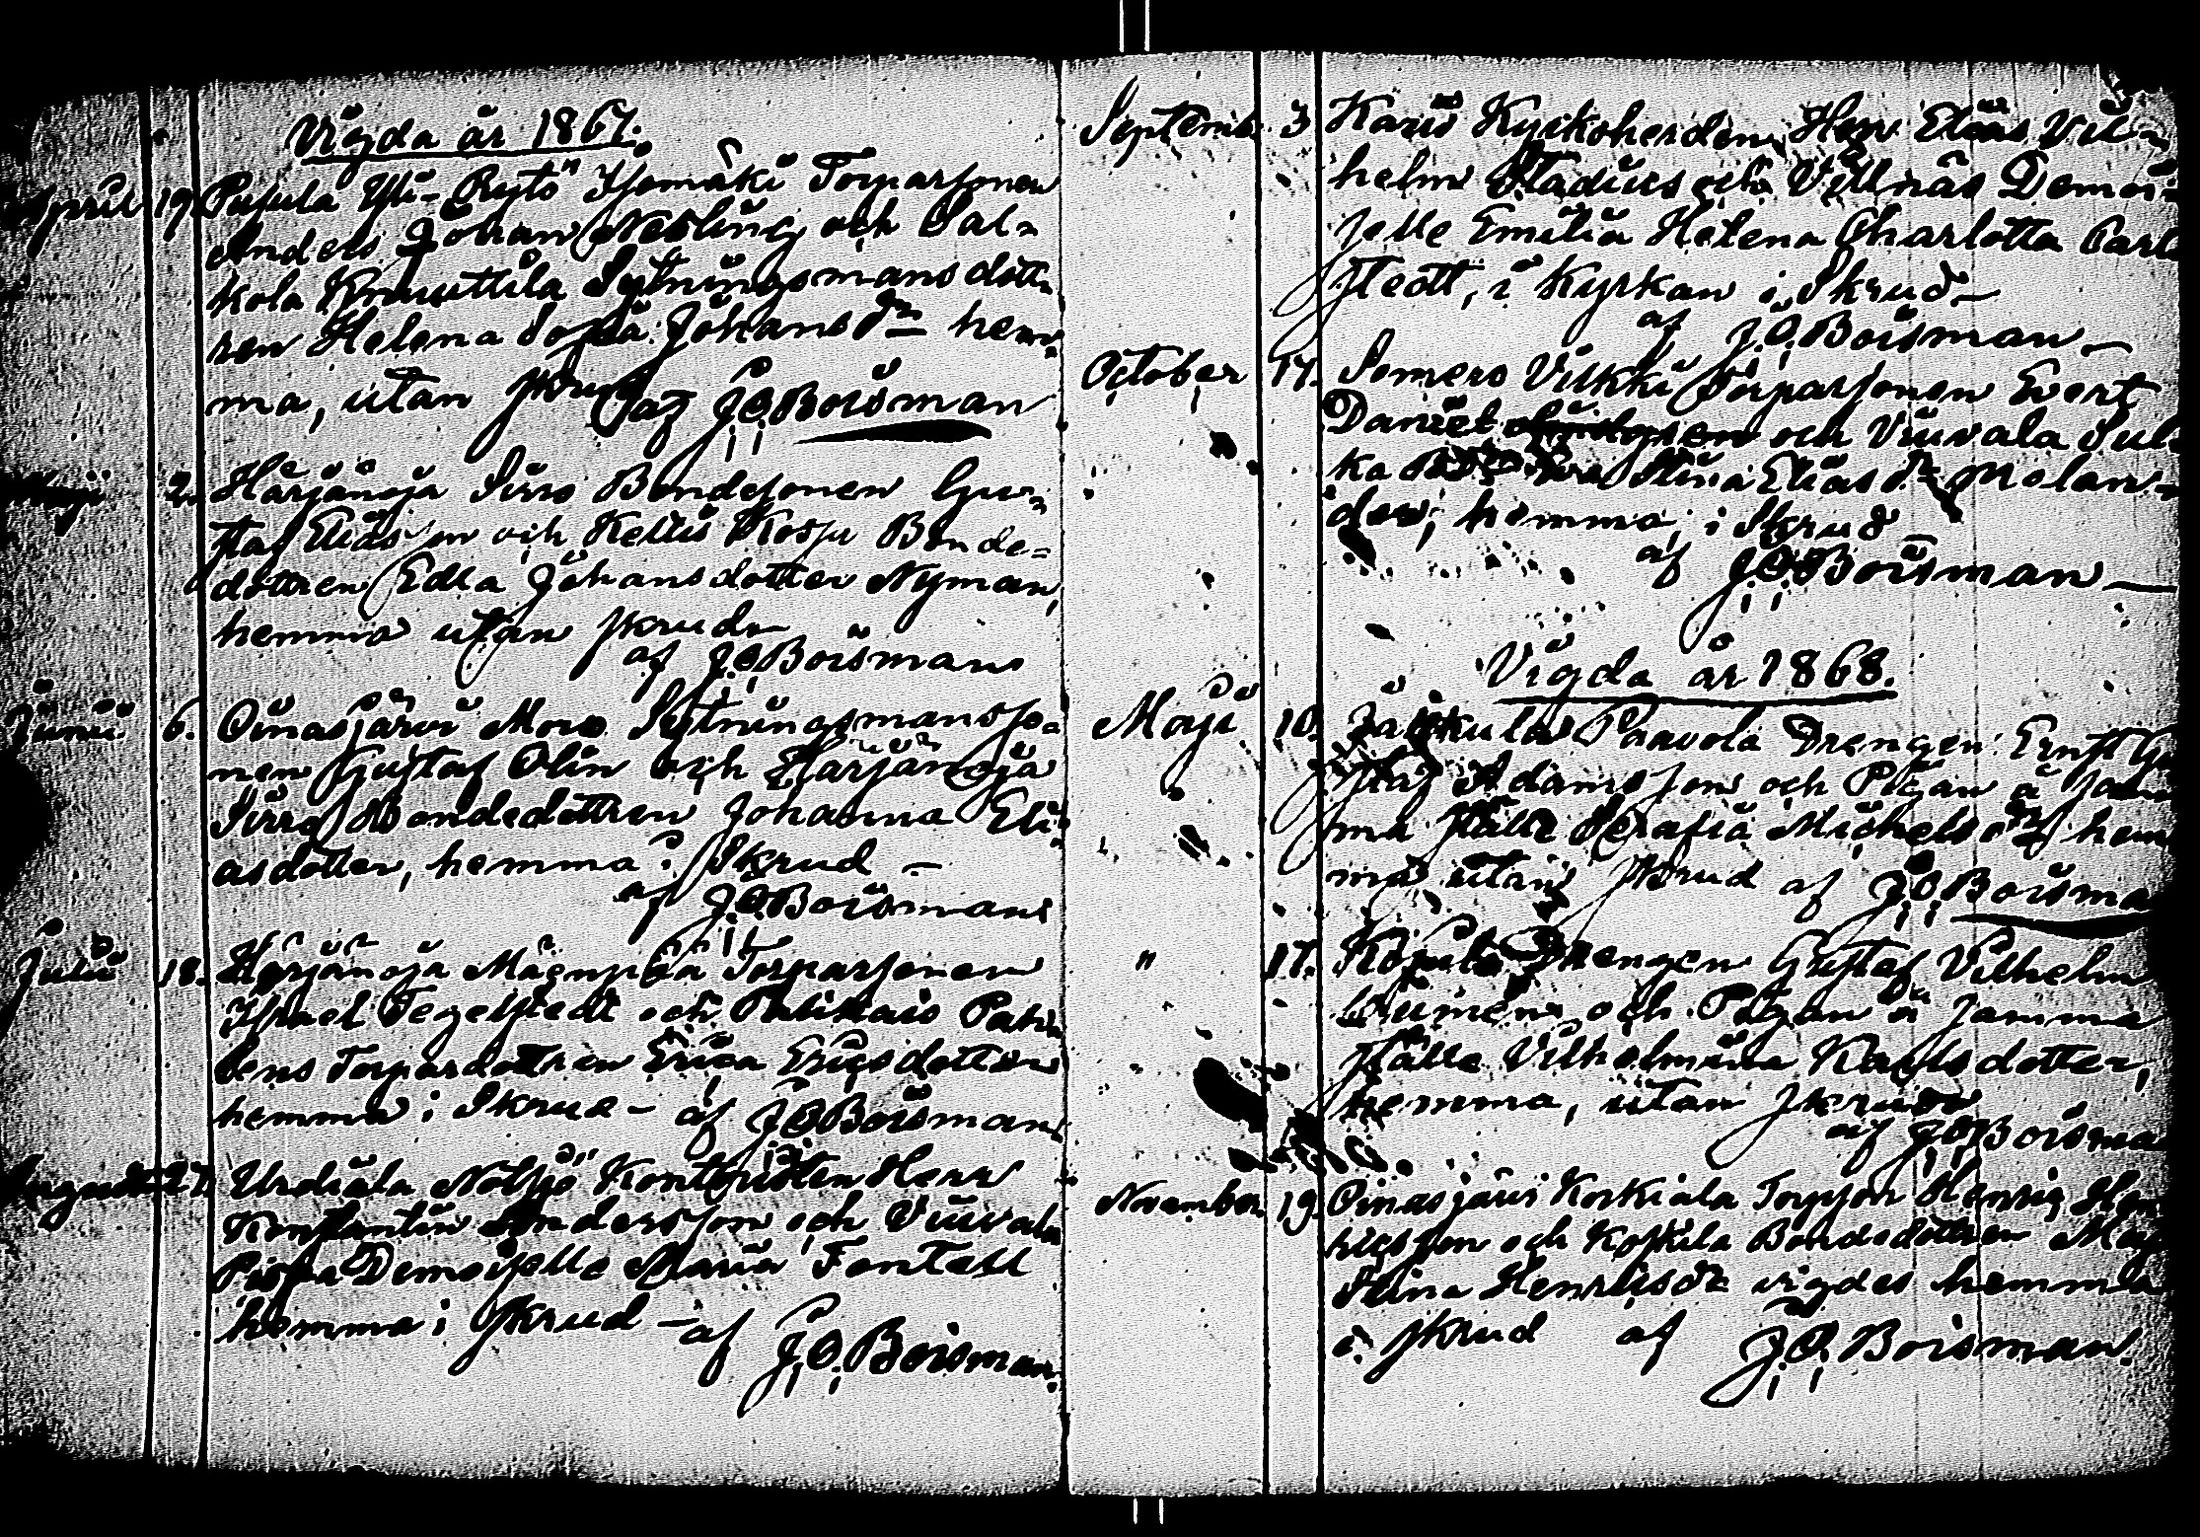 Vigda år 1867.
April 19. Pusula Yli-Rytö Isomäki Torparsonen
Anders Johan Nesling och Sal-
kola Knuuttila Sytningsmansdott-
ren Helena Sofia Johansdr hem-
ma, utan skrud af J.O. Boisman
Maji 2. Härjänoja Sirro Bondesonen Gu-
staf Eliasson och Kellis Kospu Bonde-
dottren Edla Johansdotter Nyman,
hemma utan skrud
af J.O. Boisman
Junii 6. Oinasjärvi Moro Sytningsmansso-
nen Gustaf Olin och Härjänoja
Sirro Bondedottren Johanna Eli-
asdotter, hemma i Skrud –
af J.O. Boisman
Julii 18. Härjänoja Mäenpää Torparsonen
Israel Tegelstedt och Palikais
Torpardottren Erica Ericsdotter
hemma i Skrud – af J.O. Boisman
August 27. Urdiala Nolsjö Kontoristen Herr
Konstantin Andersson och Viuvala
Pispa Demoiselle Maria Fontell
hemma i skrud – af J.O. Boisman.
Septemb. 3 Karis Kyrkoherden Herr Elias Vil-
helm Stadius och Villnäs Demoi-
selle Emilia Helena Charlotta Carl-
stedt, i Kyrkan i Skrud –
af J.O. Boisman –
October 17. Somero Vilkki Torparsonen Evert
Daniel och Viuvala Sul-
ka Stina Eliasdr Molan-
der, hemma, i Skrud
af J.O. Boisman –
Vigda år 1868.
Maji 10. Paavola Drengen Ernst Gu-
staf Adamsson och Pigan å samma
ställe Serafia Michelsdr hem-
ma utan skrud af J.O. Boisma
" 17. Drengen Gustaf Vilhelm
och Pigan å samma
ställe Vilhelmina Karlsdotter,
hemma, utan skrud
af J.O. Boisma
November 19. Oinasjärvi Korkiala Torpson Henric Hen-
ricsson och Koskila Bondedottren Maja
Stina Henricsdr vigdes hemma
i skrud af J.O. Boisman.